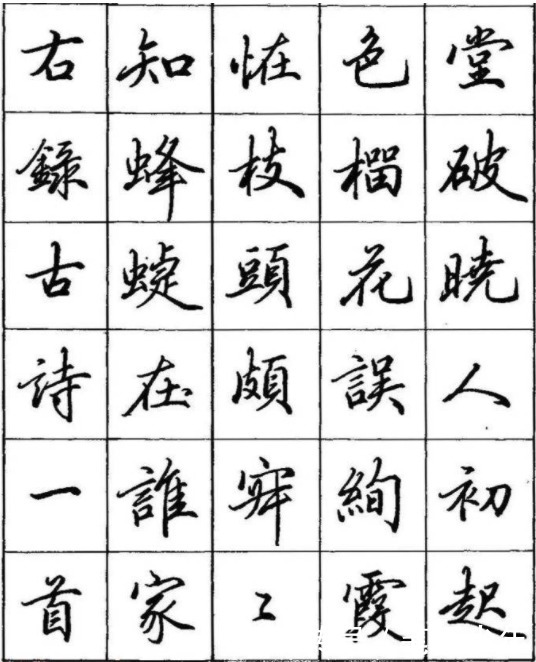 堂破曉人初起
色榴花誤絢霞
恠枝頭頗〻
知蜂蝶在誰家
右錄古詩一首